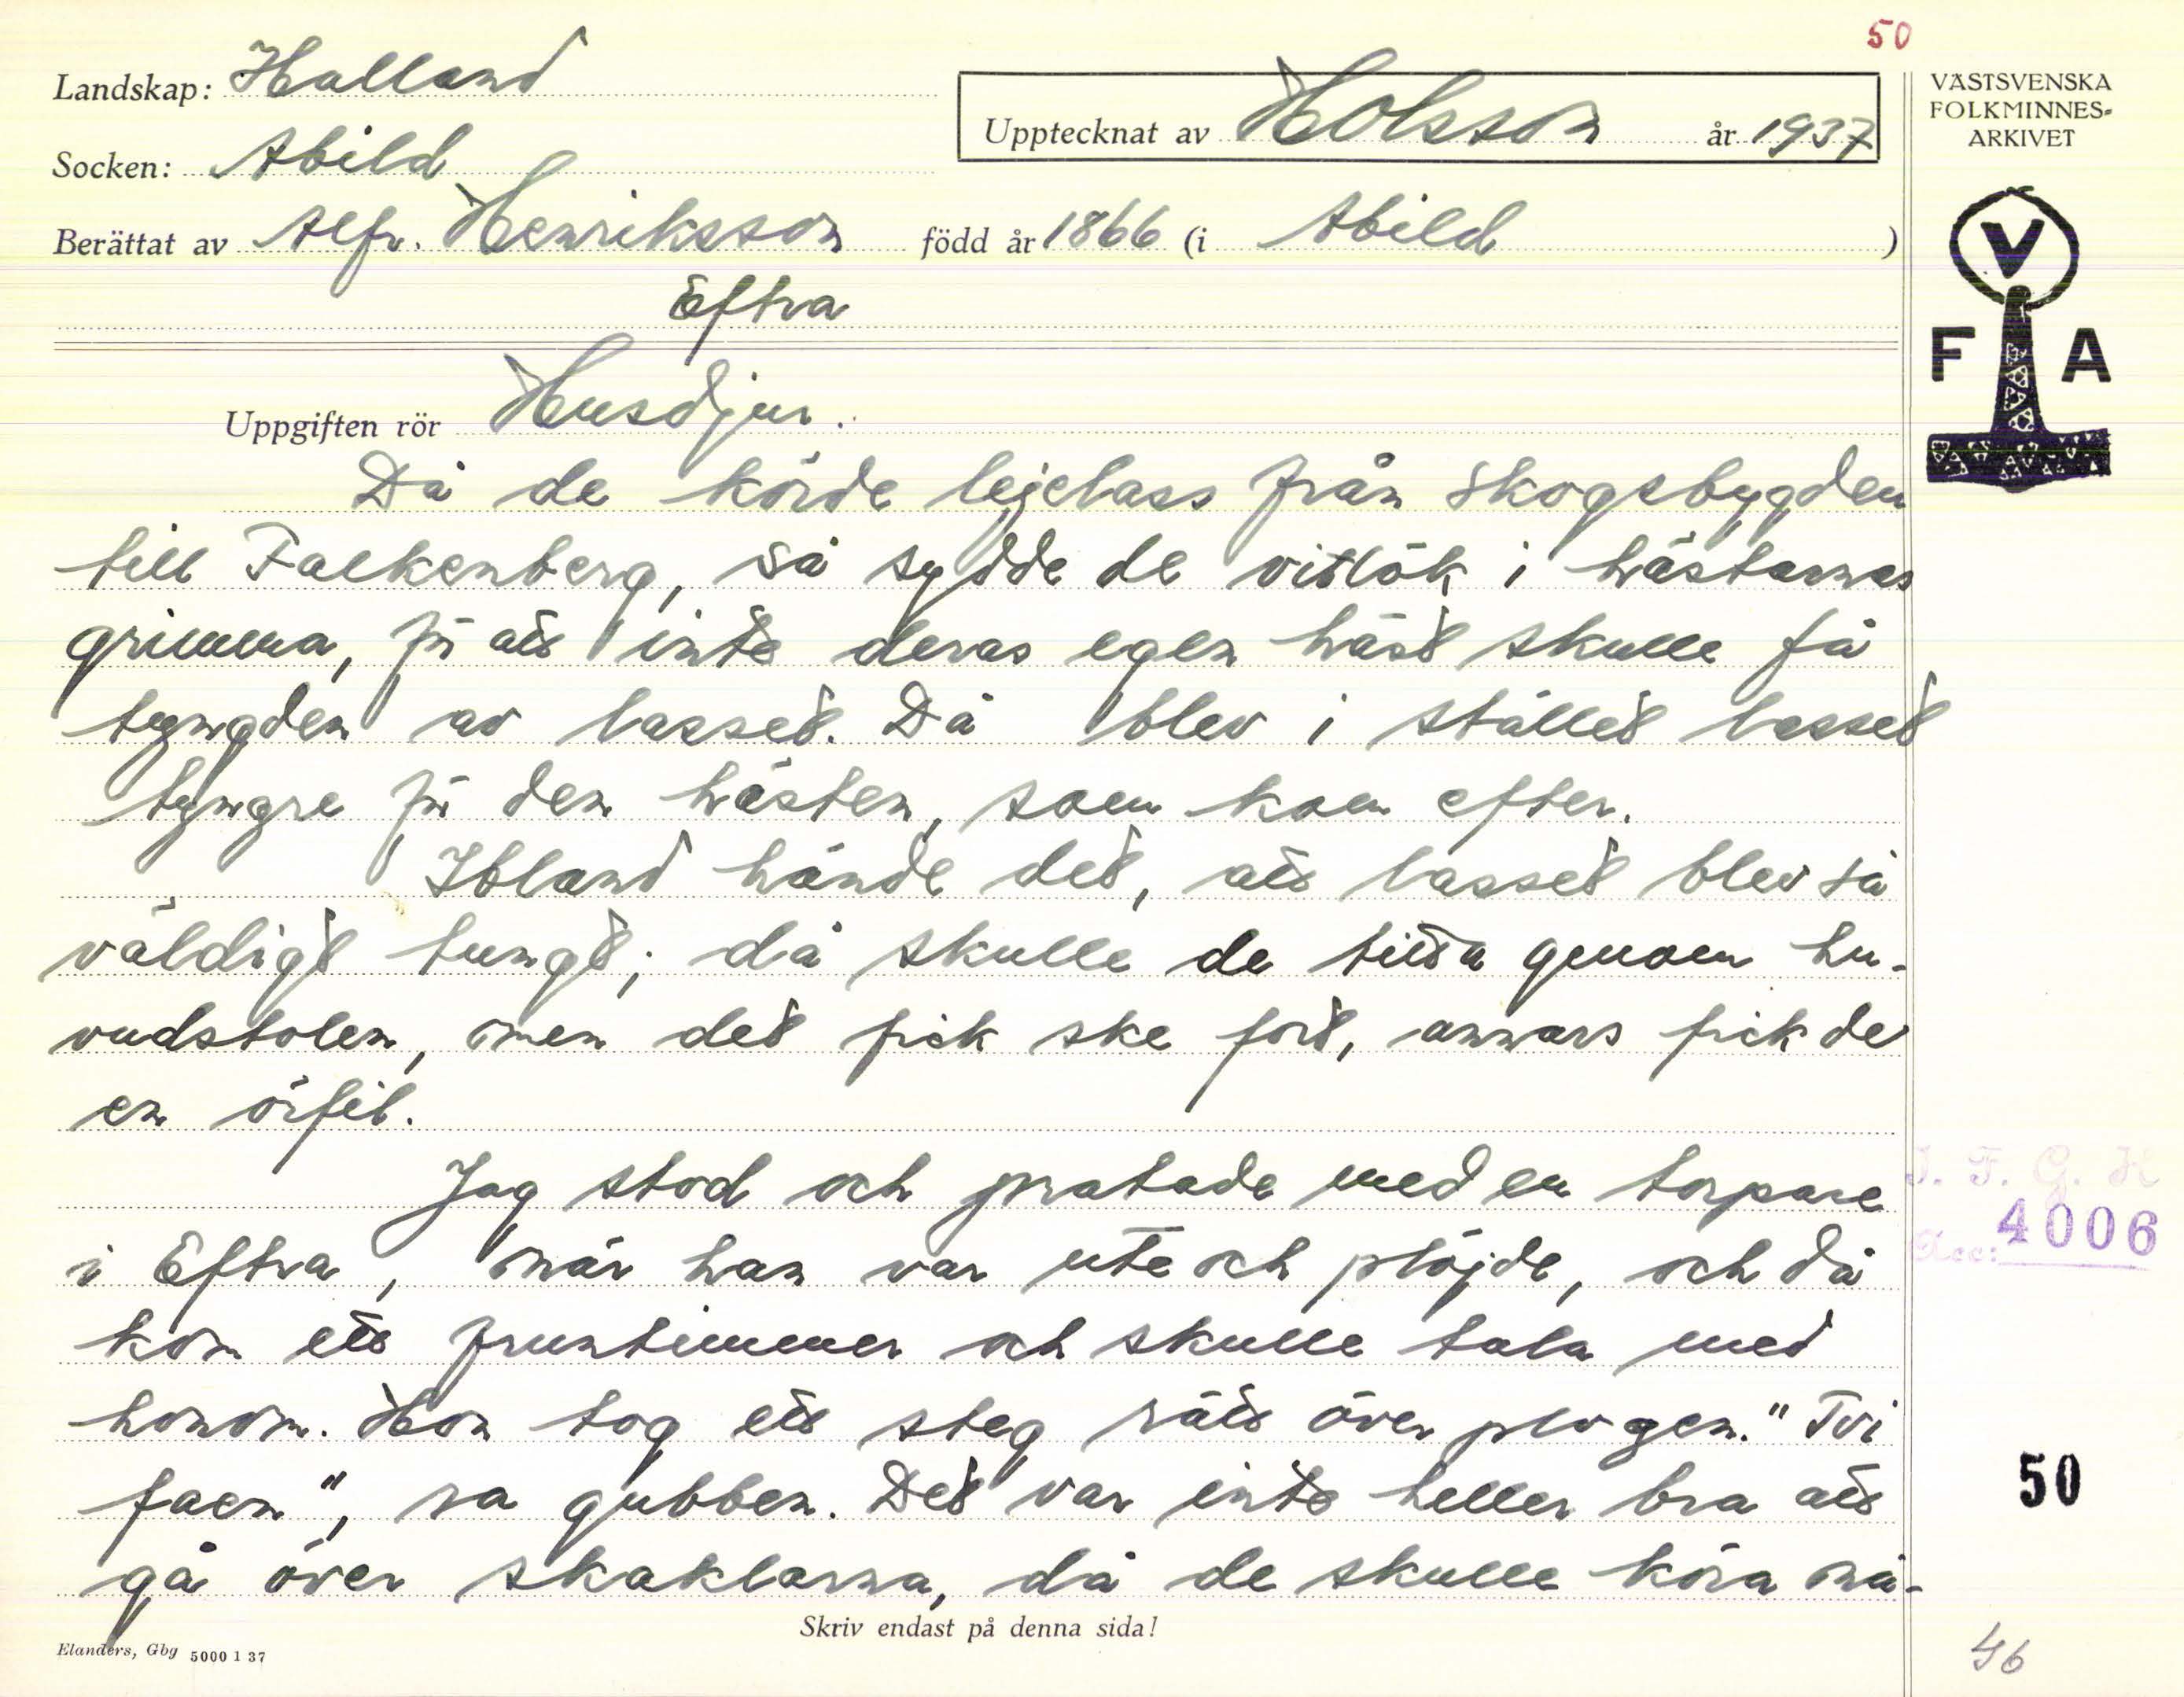 50
Landskap: Halland
Upptecknat av HOlsson år 1937
Socken: Abild
Berättat av Alfr. Henriksson född år 1866 (i Abild )
Eftra
VÄSTSVENSKA
FOLKMINNES-
ARKIVET
V
F A
Uppgiften rör Husdjur.
Då de körde lejelass från skogsbygden
till Falkenberg, så sydde de vitlök i hästarnas
grimma, för att inte deras egen häst skulle få
tyngden av lasset. Då blev i stället lasset
tyngre för den hästen, som kom efter.
Ibland hände det, att lasset blev så
väldigt tungt; då skulle de titta genom hu-
vudstolen, men det fick ske fort, annars fick de
en örfil.
Jag stod och pratade med en torpare
i Eftra, när han var ute och plöjde, och då
kom ett fruntimmer och skulle tala med
honom. Hon tog ett steg rätt över plogen. "Tvi
faen", sa gubben. Det var inte heller bra att
gå över skaklarna, då de skulle köra nå-
I. F. G. H
Acc: 4006
50
Skriv endast på denna sida!
Elanders, Gbg 5000 1 37
46